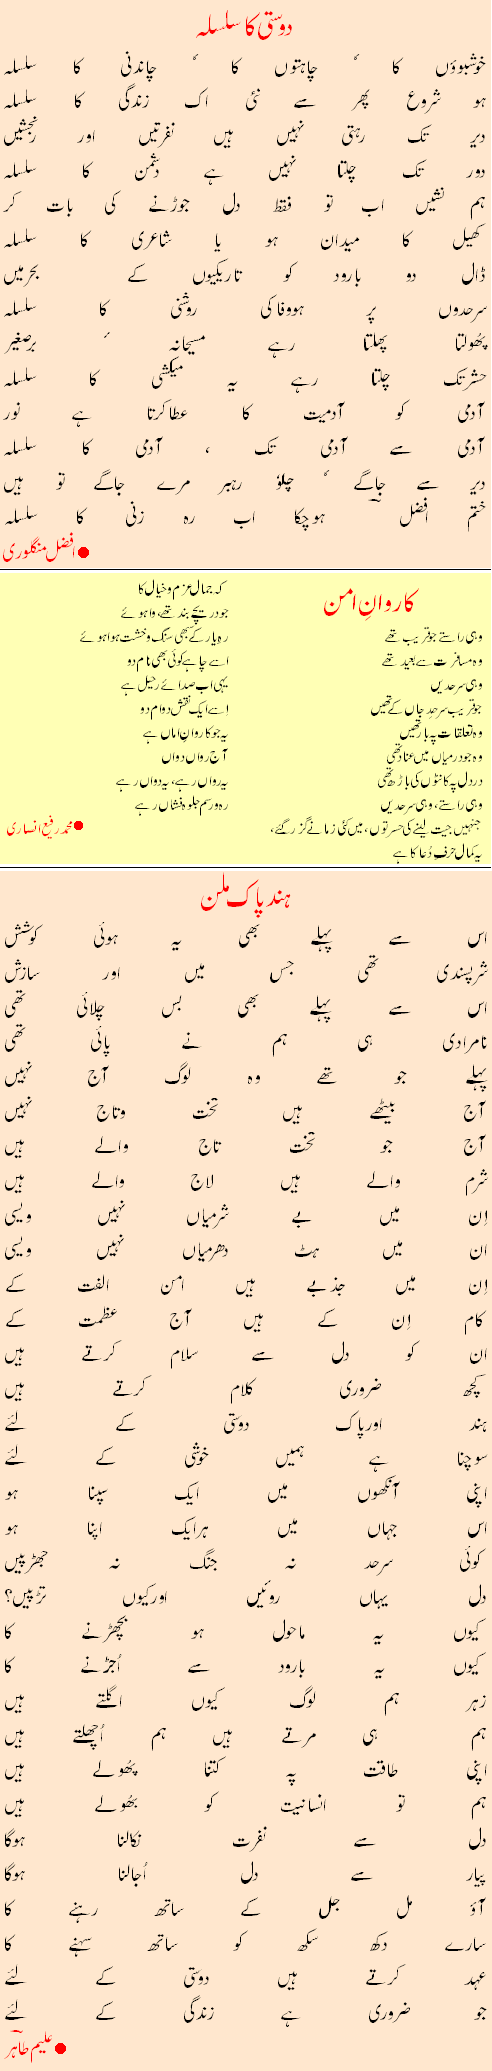 دوستی کا سلسلہ
خوشبوؤں کا ، چاہتوں کا ، چاندنی کا سلسلہ
ہو شروع پھر سے نئی اک زندگی کا سلسلہ
دیر تک رہتی نہیں ہیں نفرتیں اور رنجشیں
دور تک چلتا نہیں ہے دشمن کا سلسلہ
ہم نشیں اب تو فقط دل جوڑنے کی بات کر
کھیل کا میدان ہو یا شاعری کا سلسلہ
ڈال دو بارود کو تاریکیوں کے بحر میں
سرحدوں پر ہو وفا کی روشنی کا سلسلہ
پھُولتا پھلتا رہے مسیحانہ ، برصغیر
حشر تک چلتا رہے یہ میکشی کا سلسلہ
آدمی کو آدمیت کا عطا کرتا ہے نور
آدمی سے آدمی تک ، آدمی کا سلسلہ
دیر سے جاگے ، چلو رہبر مرے جاگے تو ہیں
ختم افضل ہو چکا اب رہ زنی کا سلسلہ
افضل منگلوری
کاروانِ امن
وہی راستے جو قریب تھے
وہ مسافرت سے بعید تھے
وہی سرحدیں
جو قریب سرحدِ جاں کے تھیں
وہ تعلقات پہ بار تھیں
وہ جو درمیاں میں عناد تھی
در دل پہ کانٹوں کی باڑھ تھی
وہی راستے، وہی سرحدیں
جنہیں جیت لینے کی حسرتوں، میں کئی زمانے گزر گئے،
یہ کمال حرفِ دُعا کا ہے
کہ جمال عزم و خیال کا
جو دریچے بند تھے، وا ہوئے
رہِ یار کے سبھی سنگ و خشت ہوا ہوئے
اسے چاہے کوئی بھی نام دو
یہی اب صدائے رحیل ہے
اِسے ایک نقش دوام دو
یہ جو کاروانِ اماں ہے
آج رواں دواں
یہ رواں رہے، یہ دواں رہے
رہ و رسم جلوہ نشاں رہے
محمد رفیع انساری
ہند پاک ملن
اس سے پہلے بھی یہ ہوئی کوشش
شرپسندی تھی جس میں اور سازش
اس سے پہلے بھی بس چلائی تھی
نامرادی ہی ہم نے پائی تھی
پہلے جو تھے وہ لوگ آج نہیں
آج بیٹھے ہیں تخت و تاج نہیں
آج جو تخت تاج والے ہیں
شرم والے ہیں لاج والے ہیں
اِن میں بے شرمیاں نہیں ویسی
ان میں ہٹ دھرمیاں نہیں ویسی
اِن میں جذبے ہیں امن الفت کے
کام اِن کے ہیں آج عظمت کے
ان کو دل سے سلام کرتے ہیں
کچھ ضروری کلام کرتے ہیں
ہند اور پاک دوستی کے لئے
سوچنا ہے ہمیں خوشی کے لئے
اپنی آنکھوں میں ایک سپنا ہو
اس جہاں میں ہر ایک اپنا ہو
کوئی سرحد نہ جنگ نہ جھڑپیں
دل یہاں روئیں اور کیوں تڑپیں؟
کیوں یہ ماحول ہو بچھڑنے کا
کیوں یہ بارود سے اُجڑنے کا
زہر ہم لوگ کیوں اگلتے ہیں
ہم ہی مرتے ہیں ہم اُچھلتے ہیں
اپنی طاقت پہ کتنا پھُولے ہیں
ہم تو انسانیت کو بھُولے ہیں
دل سے نفرت نکالنا ہوگا
پیار سے دل اُجالنا ہوگا
آؤ مل جل کے ساتھ رہنے کا
سارے دکھ سکھ کو ساتھ سہنے کا
عہد کرتے ہیں دوستی کے لئے
جو ضروری ہے زندگی کے لئے
علیم طاہر